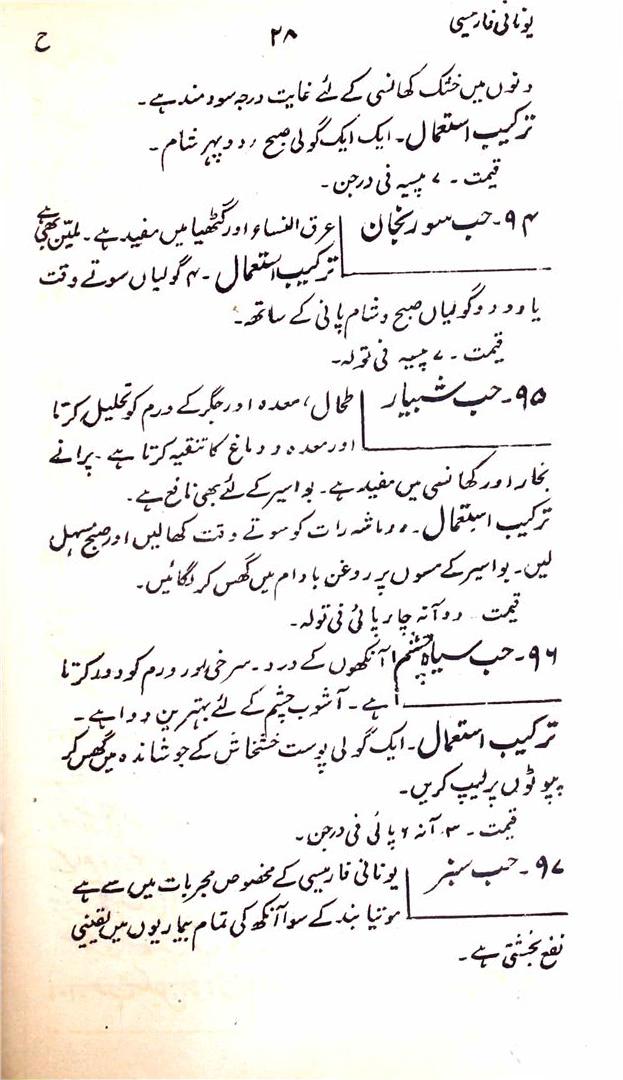 یونانی فارمیسی
۲۸
ح
دنوں میں خشک کھانسی کے لئے غایت درجہ سودمند ہے۔
ترکیب استعمال۔ ایک ایک گولی صبح، دوپہر شام۔
قیمت۔ ۷ پیسہ فی درجن۔
۹۴۔ حب سورنجان عرق النساء اور گٹھیا میں مفید ہے۔ ملیّن بھی ہے
ترکیب استعمال۔ ۴ گولیاں سوتے وقت
یا دو دو گولیاں صبح و شام پانی کے ساتھ۔
قیمت۔ ۷ پیسہ فی تولہ۔
۹۵۔ حب شبیار طحال، معدہ اور جگر کے ورم کو تحلیل کرتا
اور معدہ و دماغ کا تنقیہ کرتا ہے۔ پرانے
بخار اور کھانسی میں مفید ہے۔ بواسیر کے لئے بھی نافع ہے۔
ترکیب استعمال۔ ماشہ رات کو سوتے وقت کھالیں اور صبح مسہل
لیں۔ بواسیر کے مسوں پر روغن بادام میں گھس کر لگائیں۔
قیمت۔ دو آنہ چار پائی فی تولہ۔
۹۶۔ حب سیاہ چشم آنکھوں کے درد۔ سرخی اور ورم کو دور کرتا
ہے۔ آشوب چشم کے لئے بہترین دوا ہے۔
ترکیب استعمال۔ ایک گولی پوست خشخاش کے جوشاندہ میں گھس کر
پپوٹوں پر لیپ کریں۔
قیمت۔ ۳ آنہ ۶ پائی فی درجن۔
۹۷۔ حب سبز یونانی فارمیسی کے مخصوص مجربات میں سے ہے
موتیا بند کے سوا آنکھ کی تمام بیماریوں میں یقینی
نفع بخشتی ہے۔